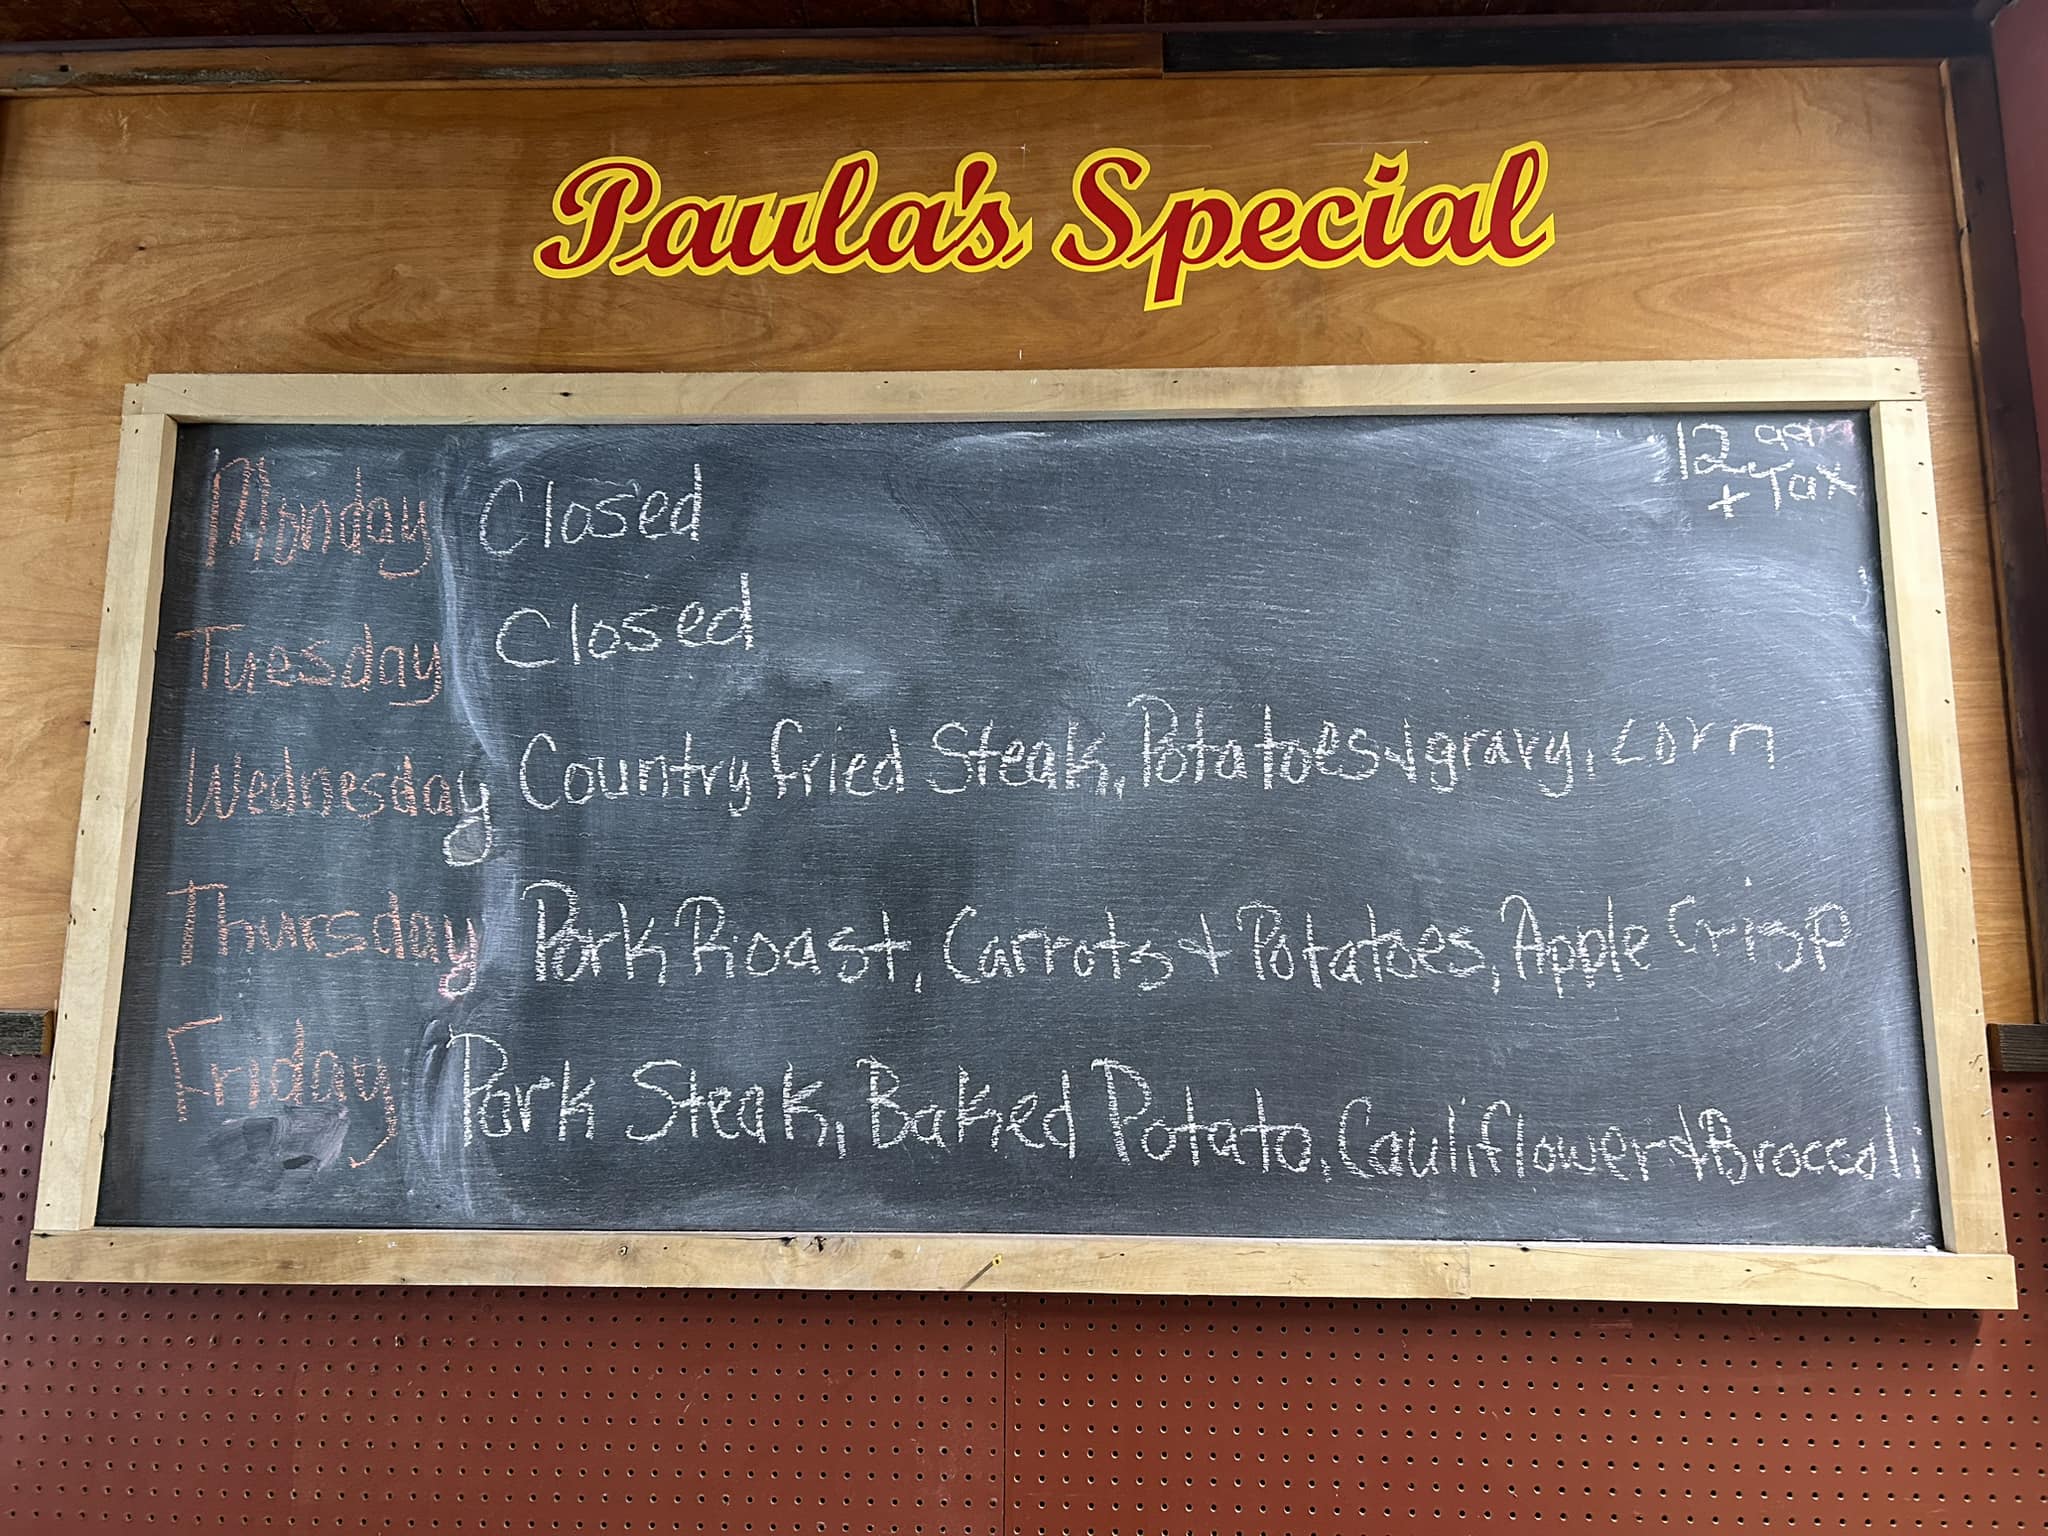 Paula's Special
12.00
+ Tax
Monday Closed
Tuesday Closed
Wednesday Country fried Steak, Potatoes & gravy, corn
Thursday Pork Roast, Carrots + Potatoes, Apple Crisp
Friday Pork Steak, Baked Potato, Cauliflower & Broccoli